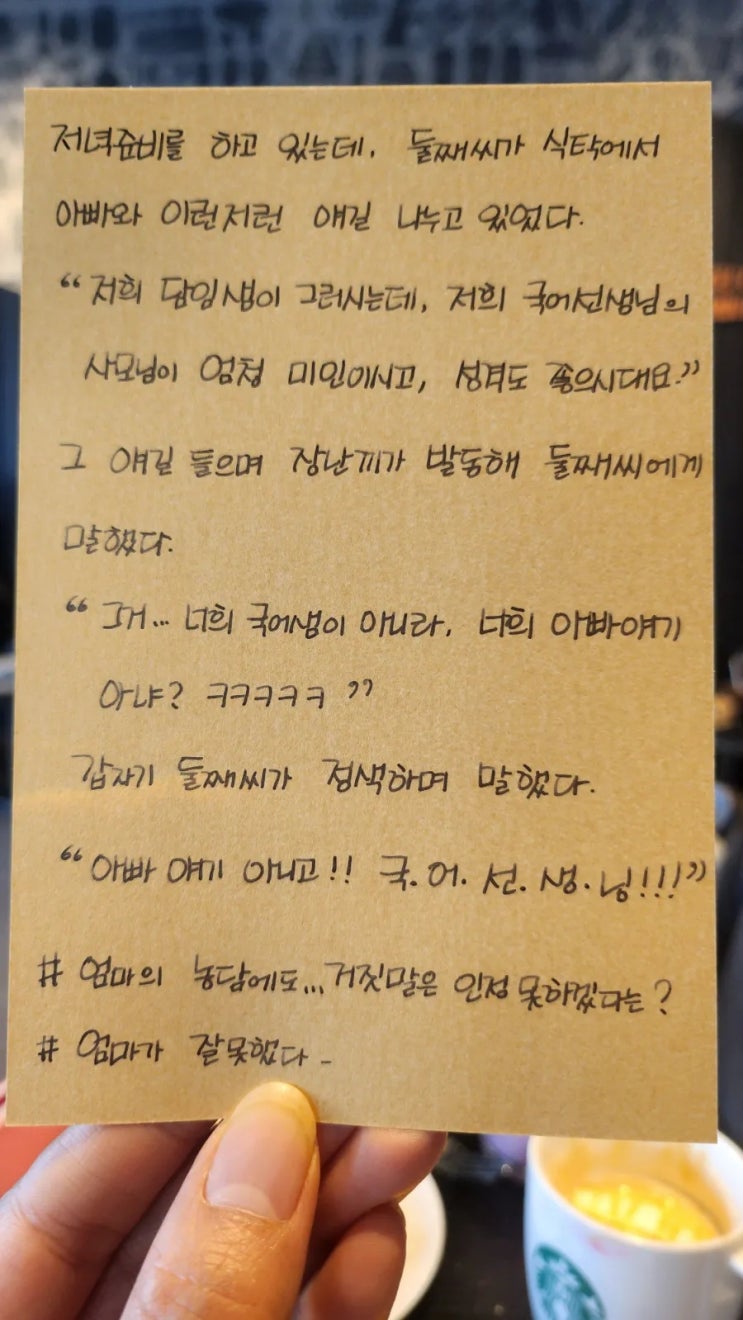 저녁준비를 하고 있는데, 둘째씨가 식탁에서
아빠와 이런저런 얘길 나누고 있었다.
“저희 담임샘이 그러시는데, 저희 국어선생님의
사모님이 엄청 미인이시고, 성격도 좋으시대요.”
그 얘길 들으며 장난끼가 발동해 둘째씨에게
말했다.
“그거... 너희 국어샘이 아니라, 너희 아빠얘기
아냐? ㅋㅋㅋㅋㅋ”
갑자기 둘째씨가 정색하며 말했다.
“아빠 얘기 아니고!! 국.어.선.생.님!!!”
# 엄마의 농담에도... 거짓말은 인정 못하겠다는?
# 엄마가 잘못했다-